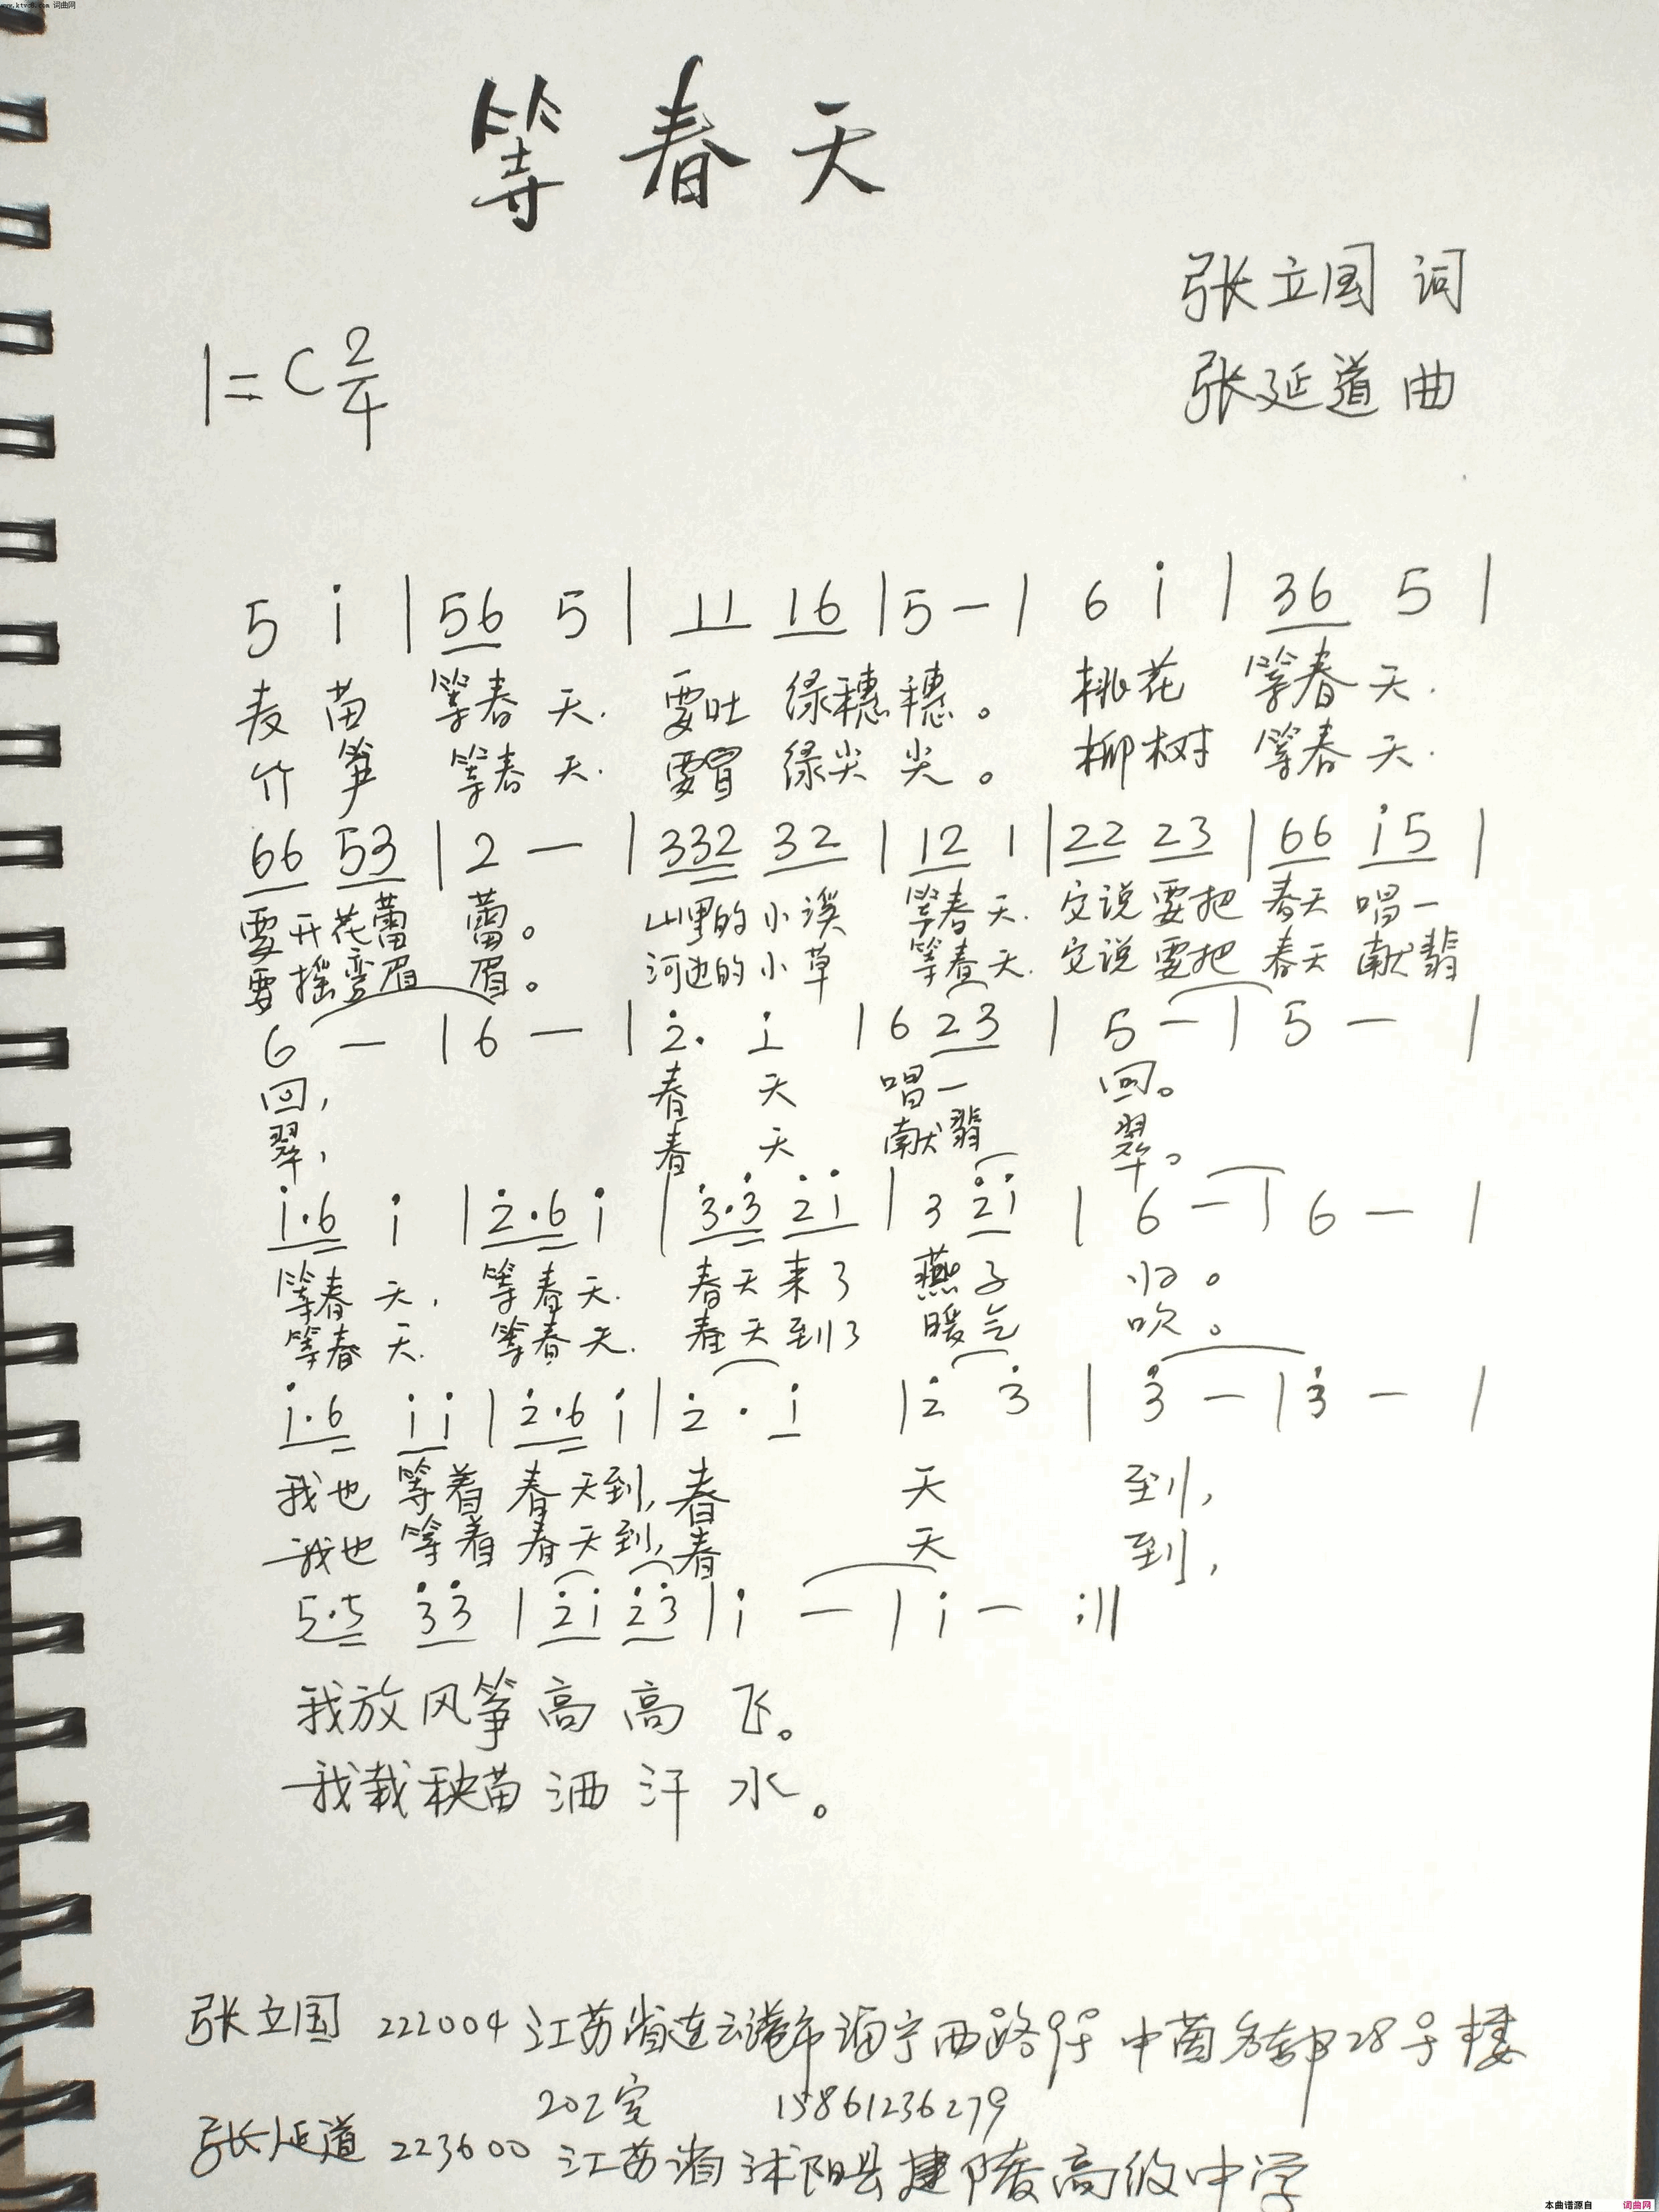 www.ktvc8.com 词曲网
等春天
张立国 词
1=C 2/4
张延道 曲
5 i | 56 5 | 11 16 | 5 — | 6 i | 36 5 |
麦苗 等春天. 要吐 绿穗穗。 桃花 等春天.
竹笋 等春天. 要冒 绿尖尖。 柳树 等春天.
66 53 | 2 — | 332 32 | 12 1 | 22 23 | 66 i5 |
要开花蕾 蕾。 山里的小溪 等春天. 它说要把 春天 唱一
要摇弯眉 眉。 河边的小草 等春天. 它说要把 春天 献翡
6 — | 6 — | 2̇. i | 6 23 | 5 — | 5 — |
回, 春 天 唱一 回。
翠, 春 天 献翡 翠。
i·6 i | 2̇·6 i | 3̇·3̇ 2̇i | 3 2̇i | 6 — | 6 — |
等春天, 等春天. 春天来了 燕子 归。
等春天. 等春天. 春天到了 暖气 吹。
i·6 ii | 2̇·6 i | 2̇· i | 2̇ 3̇ | 3̇ — | 3̇ — |
我也 等着 春天到, 春 天 到,
我也 等着 春天到, 春 天 到,
5·5 3̇3̇ | 2̇i 2̇3̇ | i — | i — :||
我放风筝高高飞。
我栽秧苗洒汗水。
张立国 222004 江苏省连云港市海宁西路9号 中茵名都28号楼
202室 15861236279
张延道 223600 江苏省沭阳县建陵高级中学
本曲谱源自 词曲网